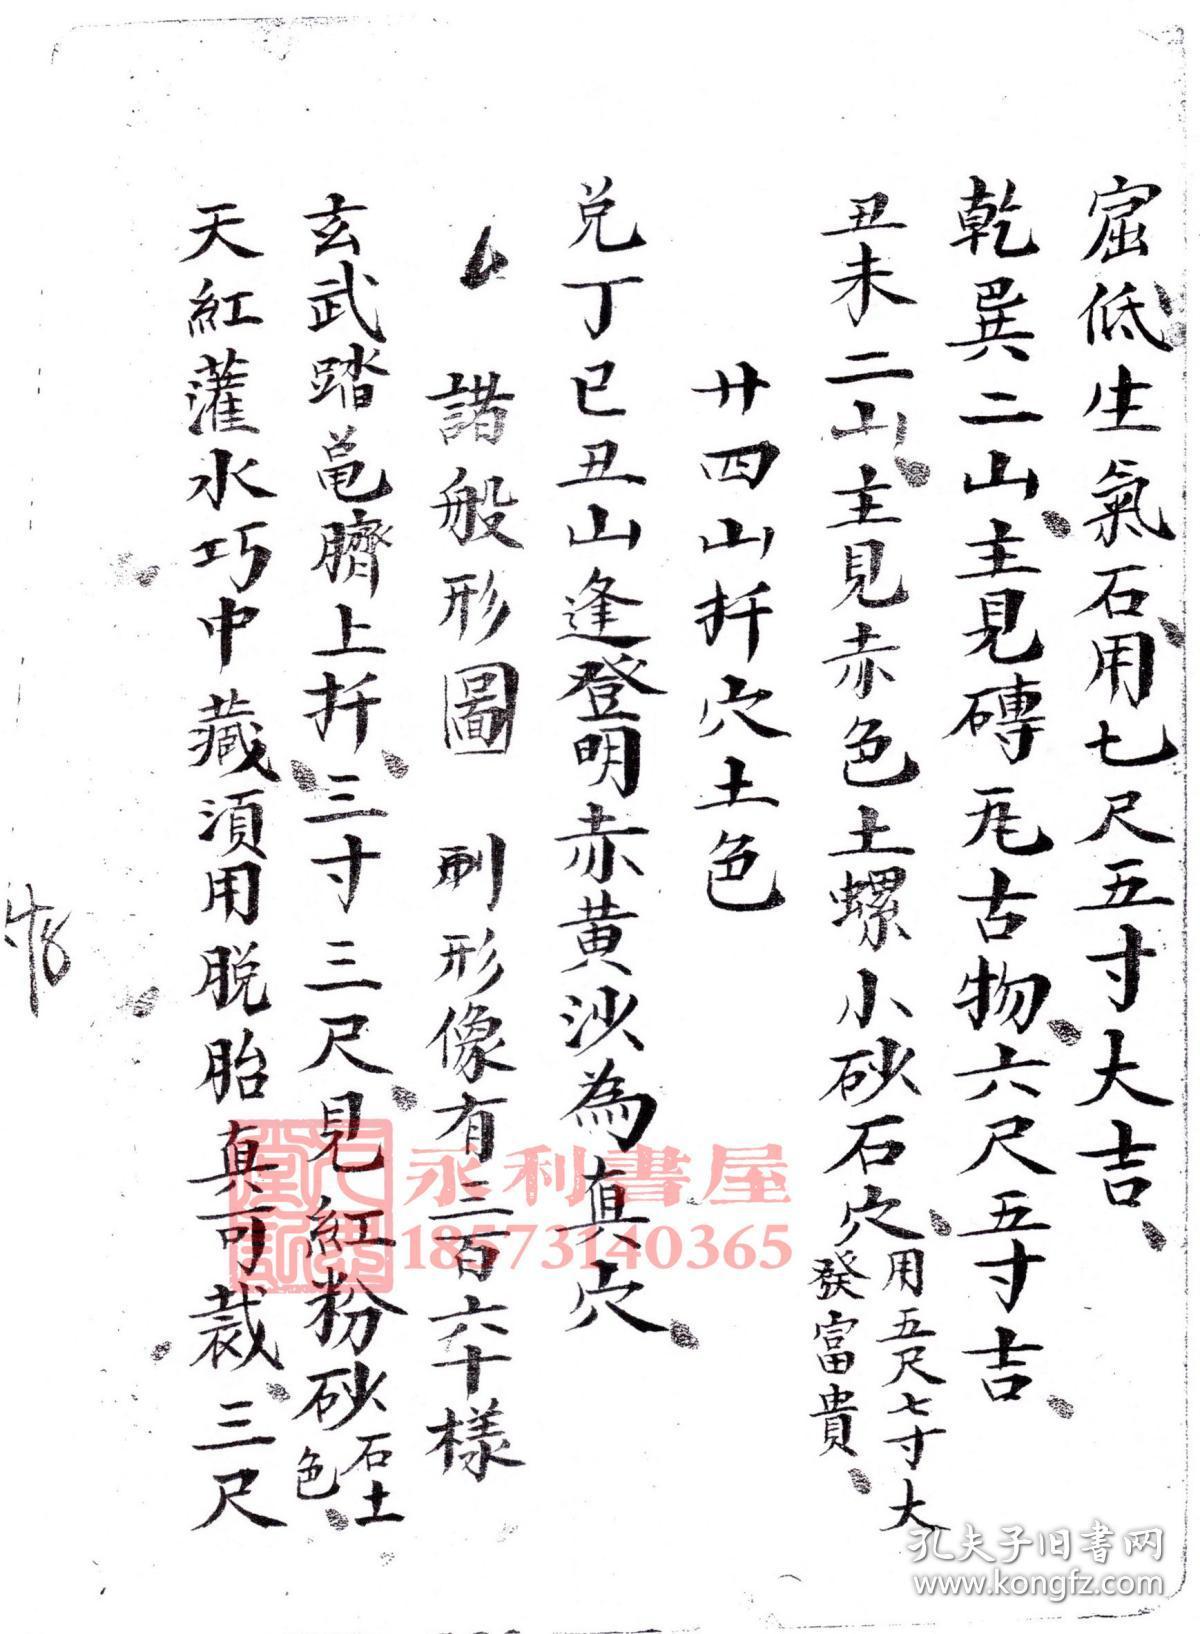 窟低生氣石用七尺五寸大吉
乾巽二山主見磚瓦古物六尺五寸吉
丑未二山主見赤色土螺小砂石穴用五尺七寸大
發富貴
廿四山扦穴土色
兌丁巳丑山逢登明赤黄沙為真穴
諸般形圖 刪形像有三百六十樣
玄武踏黽臍上扦三寸三尺見紅粉砂石土
色
天紅灌水巧中藏須用脱胎真可裁三尺
永利書屋
18573140365
孔夫子旧书网
www.kongfz.com